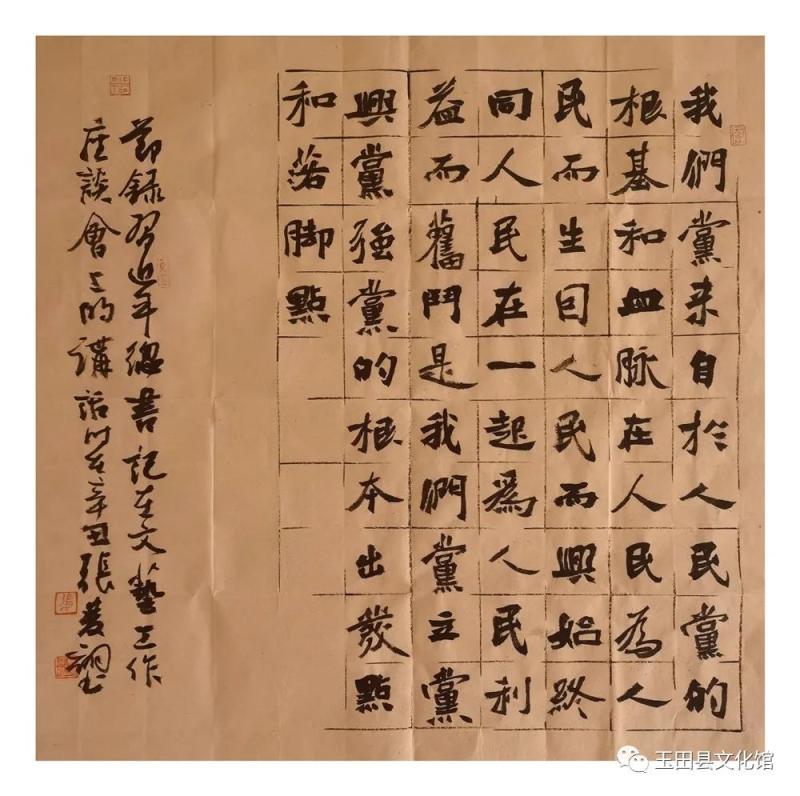 我們黨来自於人民黨的
根基和血脉在人民為人
民而生因人民而興始終
同人民在一起為人民利
益而奮鬥是我們黨立黨
興黨強黨的根本出發點
和落脚點
節錄習近平總書記在文藝工作
座談會上的講話時在辛丑張
玉田县文化馆